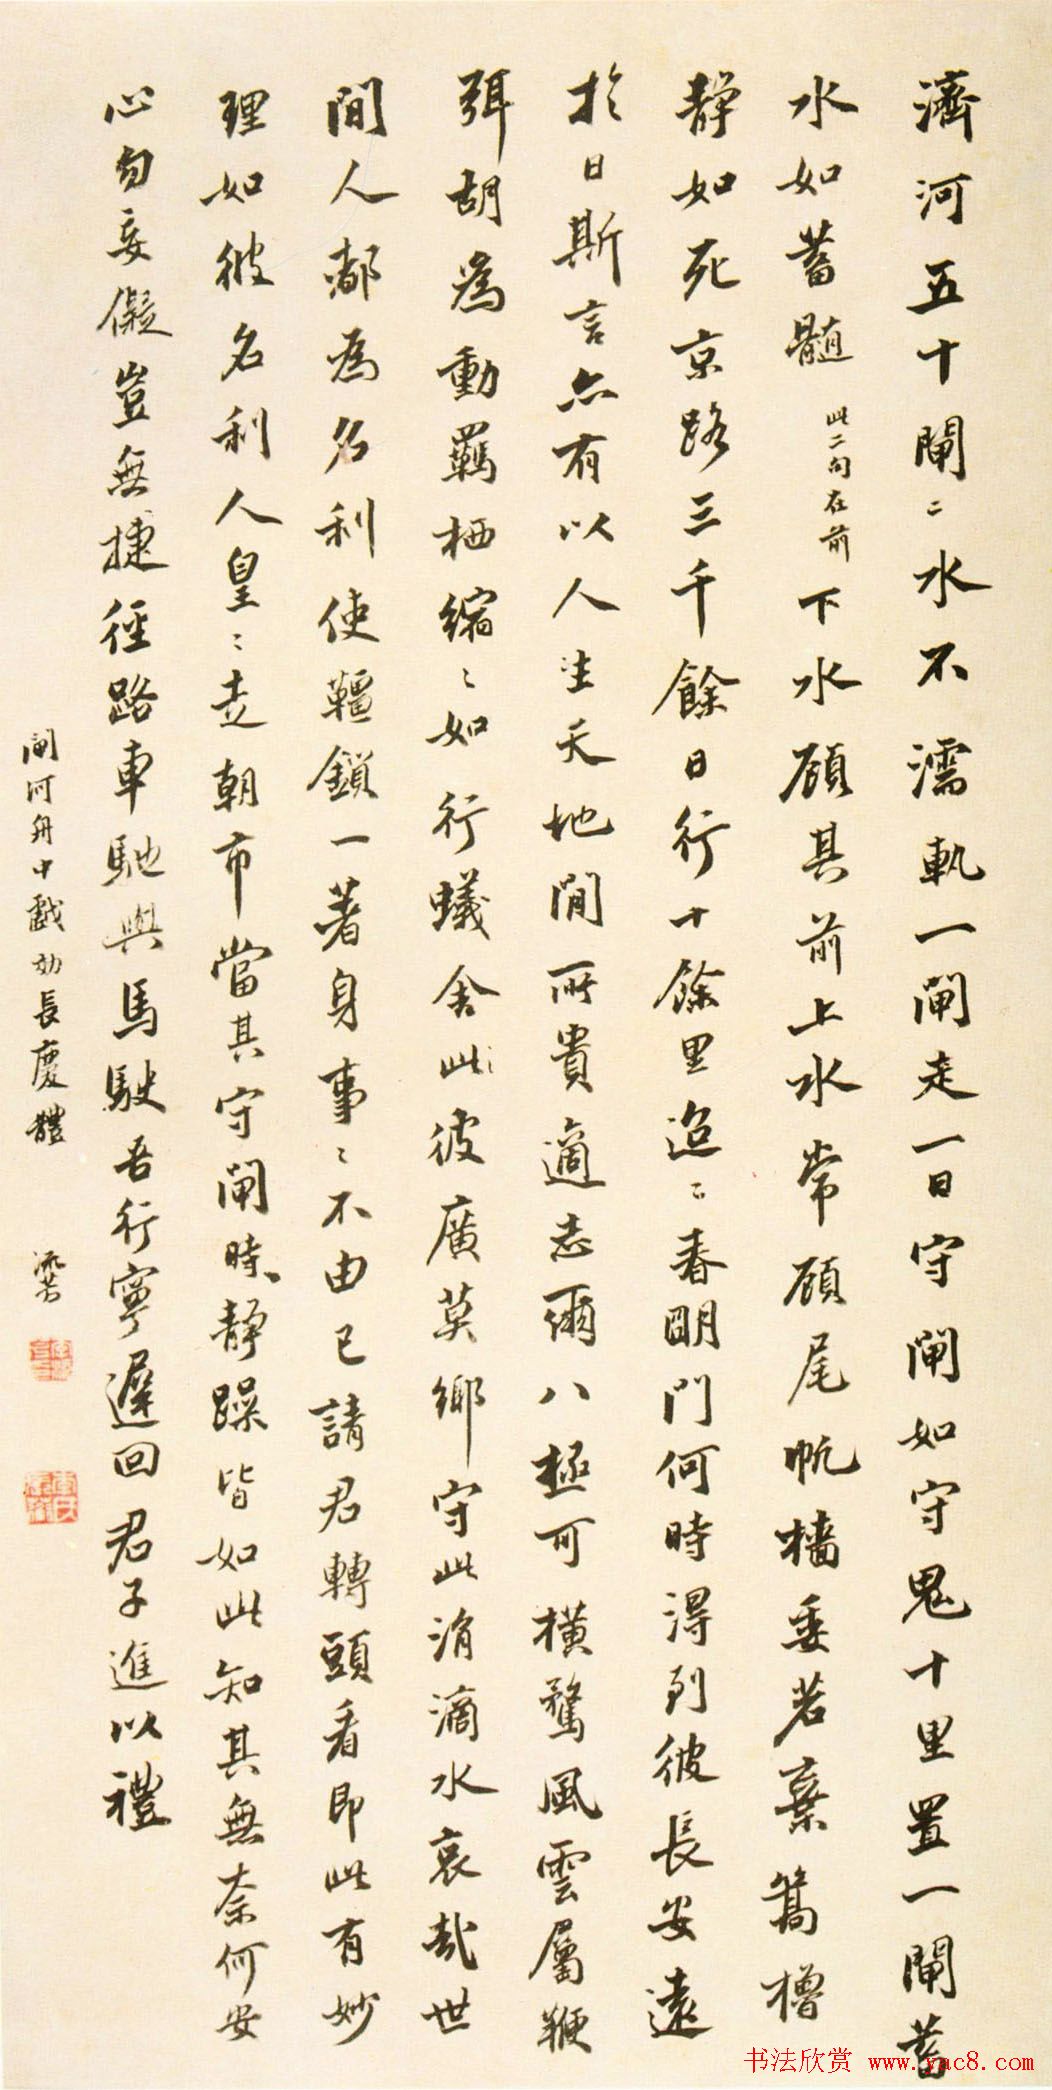 濟河五十閘二水不濡軌一閘走一日守閘如守鬼十里置一閘蓄
水如蓄髓此二句在前下水顧其前上水常顧尾帆檣委若棄篙櫓
靜如死京路三千餘日行十餘里迢二春明門何時得到彼長安遠
於日斯言亦有以人生天地間所貴適志爾八極可橫騖風雲屬鞭
弭胡為動羈栖縮二如行蟻舍此彼廣莫鄉守此涓滴水哀哉世
間人都為名利使韁鎖一著身事二不由己請君轉頭看即此有妙
理如彼名利人皇二走朝市當其守閘時靜躁皆如此知其無奈何安
心勿妄儗豈無捷徑路車馳與馬駛吾行寧遲回君子進以禮
閘河舟中戲効長慶體
書法欣赏 www.yac8.com